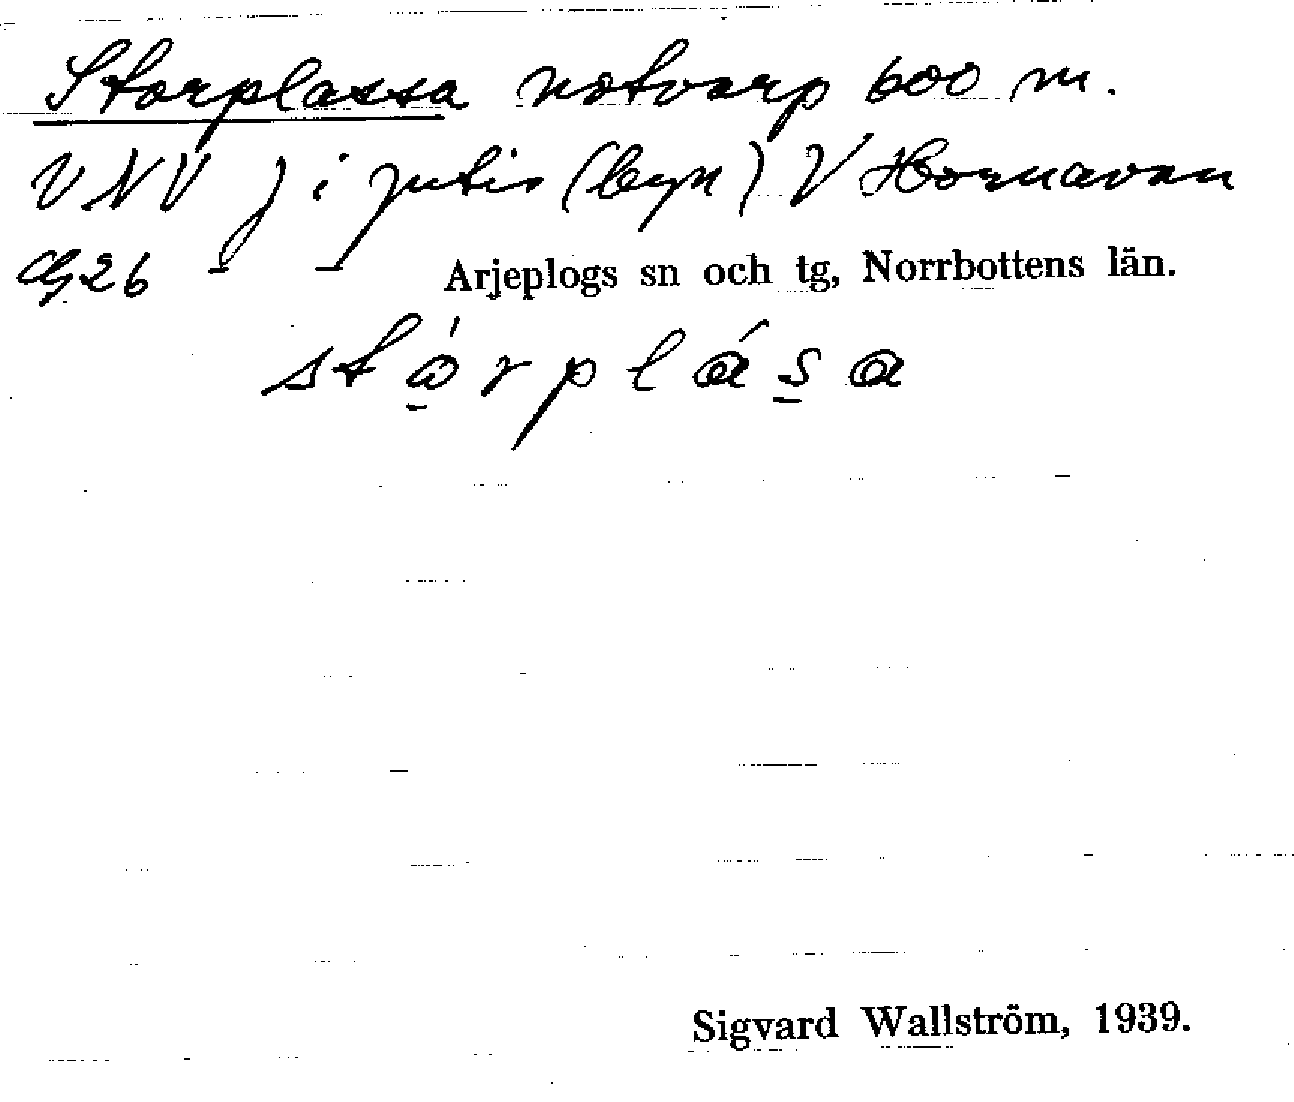 Storplassa notvarp 600 m.
VNV j i jutis (byn) V Hornavan
26 Arjeplogs sn och tg, Norrbottens län.
stǻrplása
Sigvard Wallström, 1939.